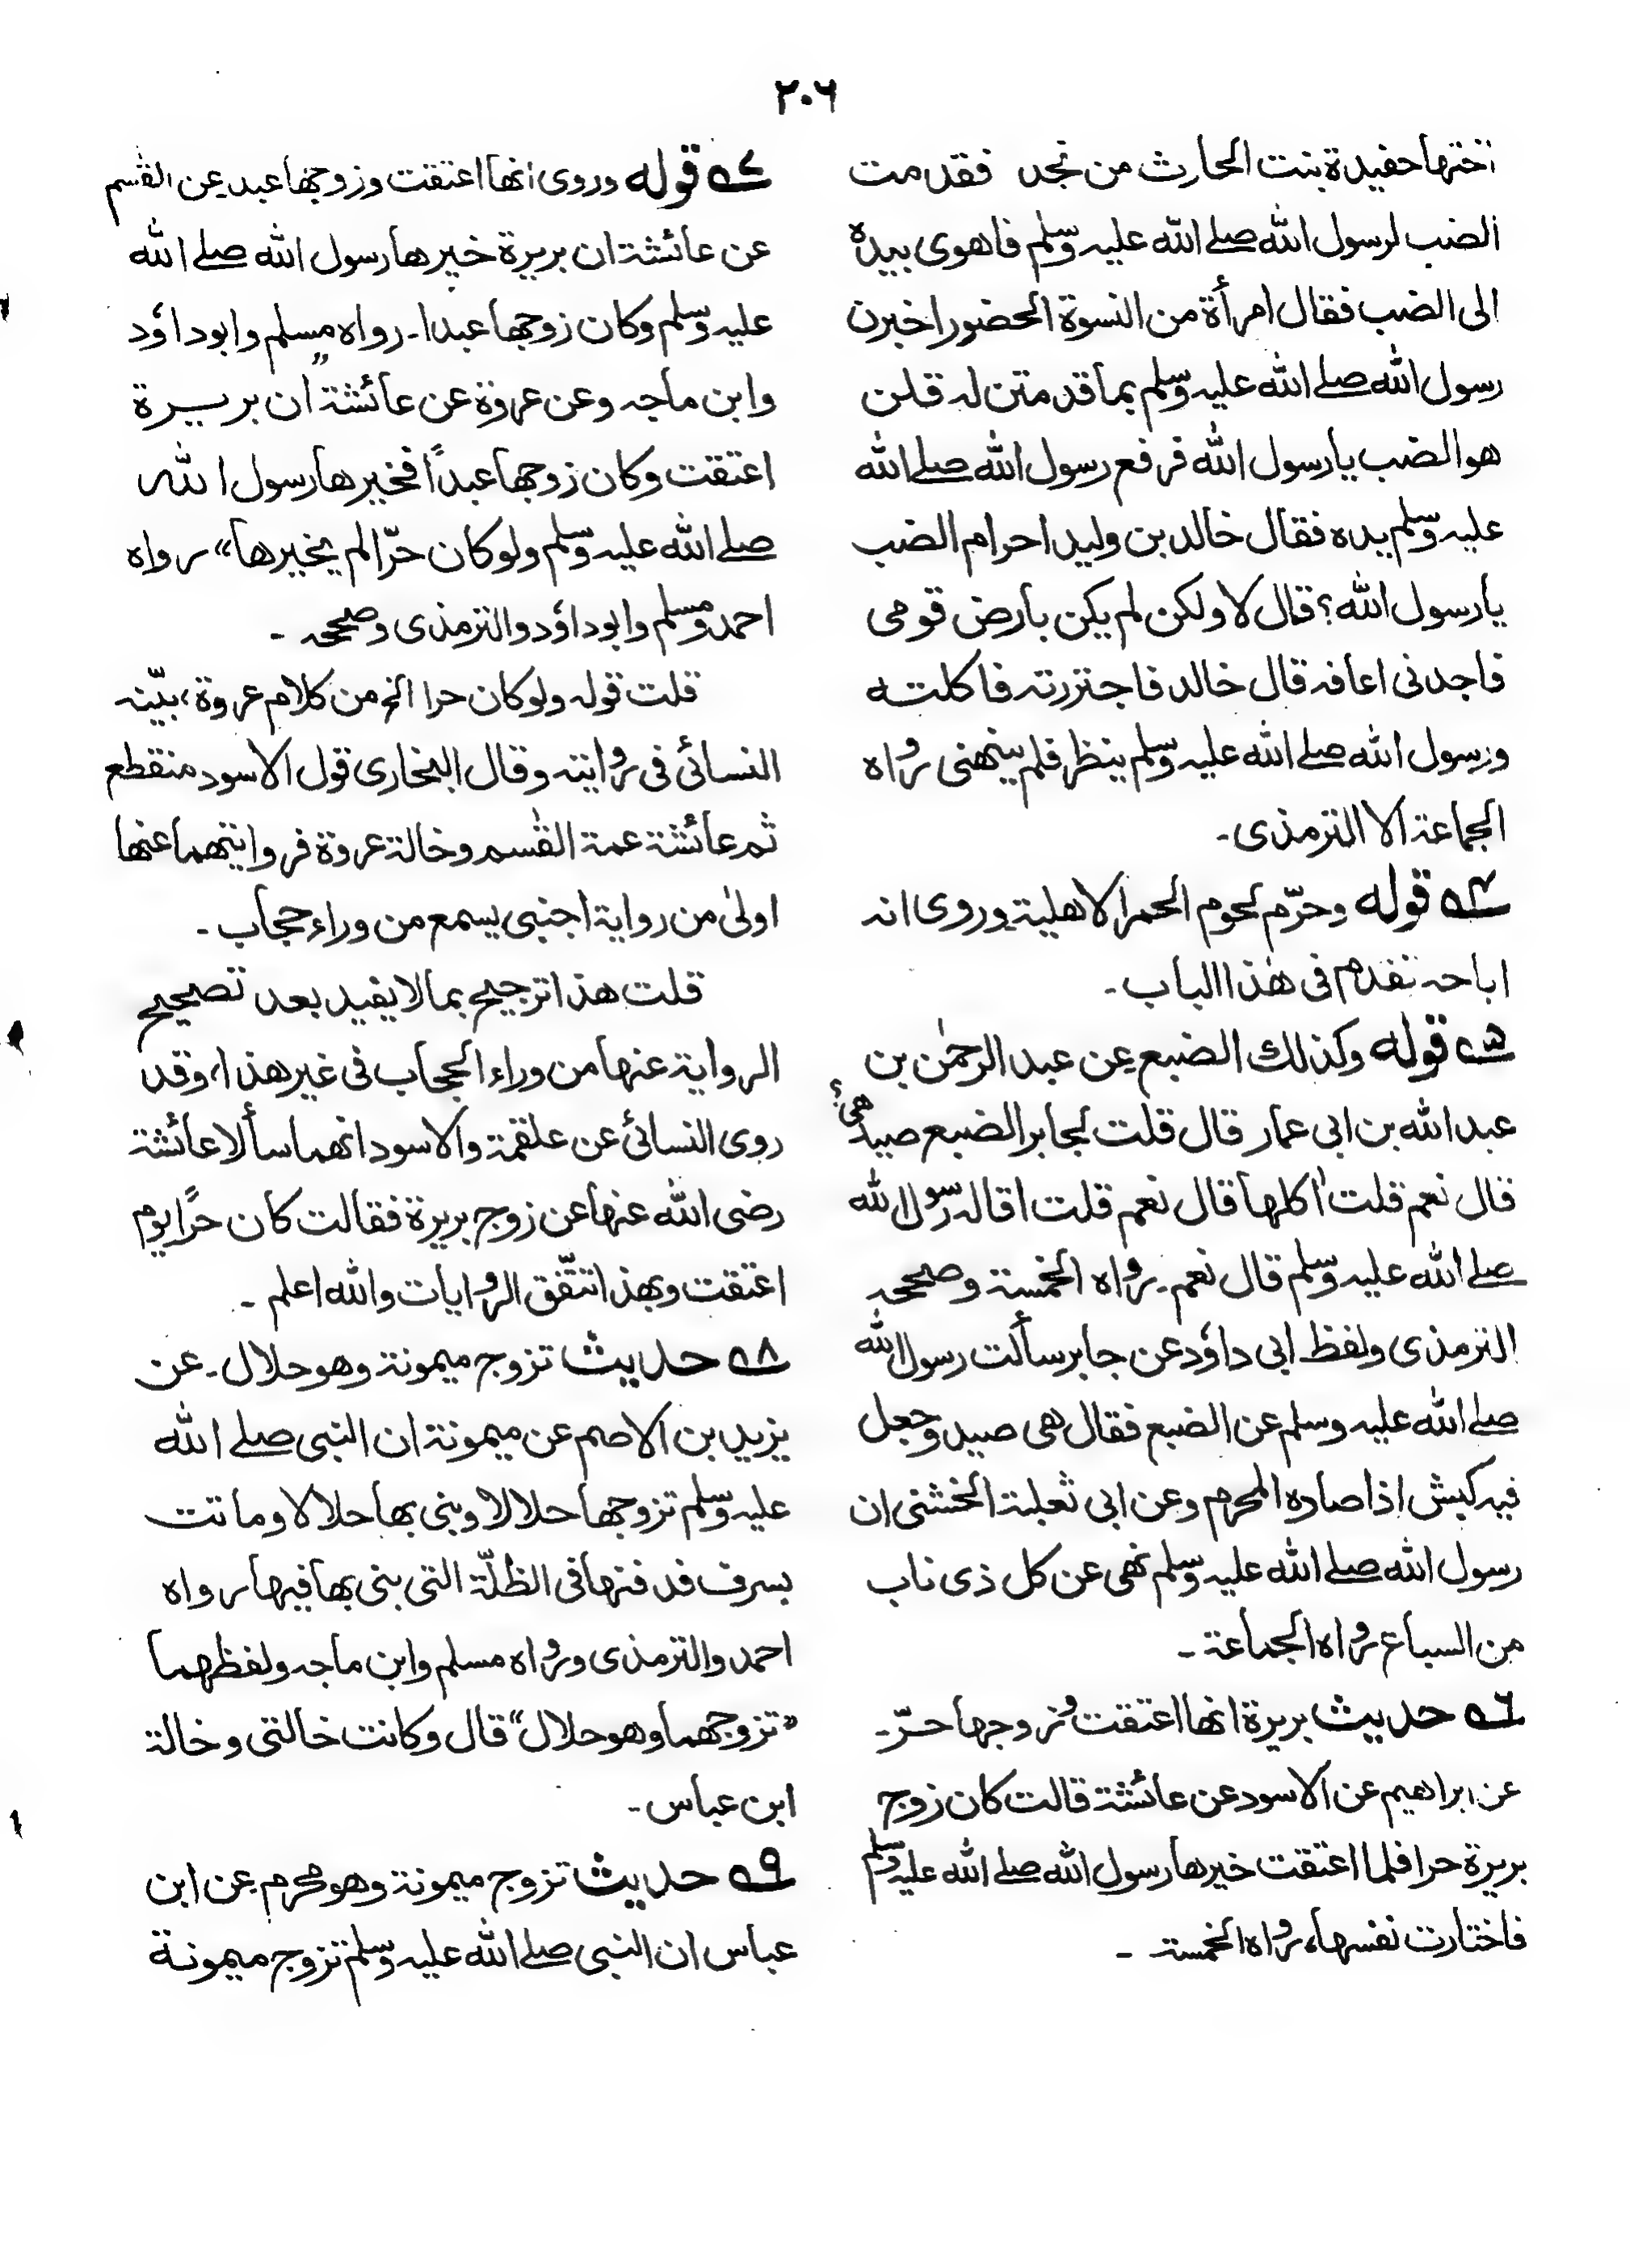 ٢٠٦
اختها حفيدة بنت الحارث من نجد فقدمت
الضب لرسول الله صلے الله عليه وسلم فاهوى بيده
الى الضب فقال امرأة من النسوة الحضور اخبرن
رسول الله صلے الله عليه وسلم بما قدمتن له قلن
هو الضب يا رسول الله فرفع رسول الله صلے الله
عليه وسلم يده فقال خالد بن وليد احرام الضب
يا رسول الله؟ قال لا ولكن لم يكن بارض قومى
فاجدنى اعافه قال خالد فاجتزرته فاكلته
ورسول الله صلے الله عليه وسلم ينظر فلم ينهنى رواه
الجماعة الا الترمذى۔
٤؎ قوله وحرّم لحوم الحمر الاهلية وروى انه
اباحه تقدم فى هٰذا الباب۔
٥؎ قوله وكذلك الضبع عن عبد الرحمٰن بن
عبد الله بن ابى عمار قال قلت لجابر الضبع صيد هى؟
قال نعم قلت اٰكلها قال نعم قلت اقاله رسول الله
صلے الله عليه وسلم قال نعم۔ رواه الخمسة وصححه
الترمذى ولفظ ابى داؤد عن جابر سألت رسول الله
صلے الله عليه وسلم عن الضبع فقال هى صيد وجعل
فيه كبش اذا صاده المحرم وعن ابى ثعلبة الخشنى ان
رسول الله صلے الله عليه وسلم نهى عن كل ذى ناب
من السباع رواه الجماعة۔
٦؎ حديث بريرة انها اعتقت وزوجها حرّ۔
عن ابراهيم عن الاسود عن عائشة قالت كان زوج
بريرة حرا فلما اعتقت خيرها رسول الله صلے الله عليه وسلم
فاختارت نفسها، رواه الخمسة۔
٧؎ قوله وروى انها اعتقت وزوجها عبد عن القٰسم
عن عائشة ان بريرة خيرها رسول الله صلے الله
عليه وسلم وكان زوجها عبدا۔ رواه مسلم وابوداؤد
وابن ماجه وعن عروة عن عائشة "ان بريرة
اعتقت وكان زوجها عبداً فخيرها رسول الله
صلے الله عليه وسلم ولو كان حرّا لم يخيرها" رواه
احمد ومسلم وابوداؤد والترمذى وصححه۔
قلت قوله ولو كان حرا الخ من كلام عروة، بيّنه
النسائى فى روايته وقال البخارى قول الاسود منقطع
ثم عائشة عمة القٰسم وخالة عروة فروايتهما عنها
اولىٰ من رواية اجنبى يسمع من وراء حجاب۔
قلت هذا ترجيح بما لا يفيد بعد تصحيح
الرواية عنها من وراء الحجاب فى غير هذا، وقد
روى النسائى عن علقمة والاسود انهما سألا عائشة
رضى الله عنها عن زوج بريرة فقالت كان حرًا يوم
اعتقت وبهذا تتّفق الروايات والله اعلم۔
٨؎ حديث تزوج ميمونة وهو حلال۔ عن
يزيد بن الاصم عن ميمونة ان النبى صلے الله
عليه وسلم تزوجها حلالا وبنى بها حلالا وماتت
بسرف فدفنها فى الظلّة التى بنى بها فيها رواه
احمد والترمذى ورواه مسلم وابن ماجه ولفظهما
"تزوجهما وهو حلال" قال وكانت خالتى وخالة
ابن عباس۔
٩؎ حديث تزوج ميمونة وهو محرم عن ابن
عباس ان النبى صلے الله عليه وسلم تزوج ميمونة